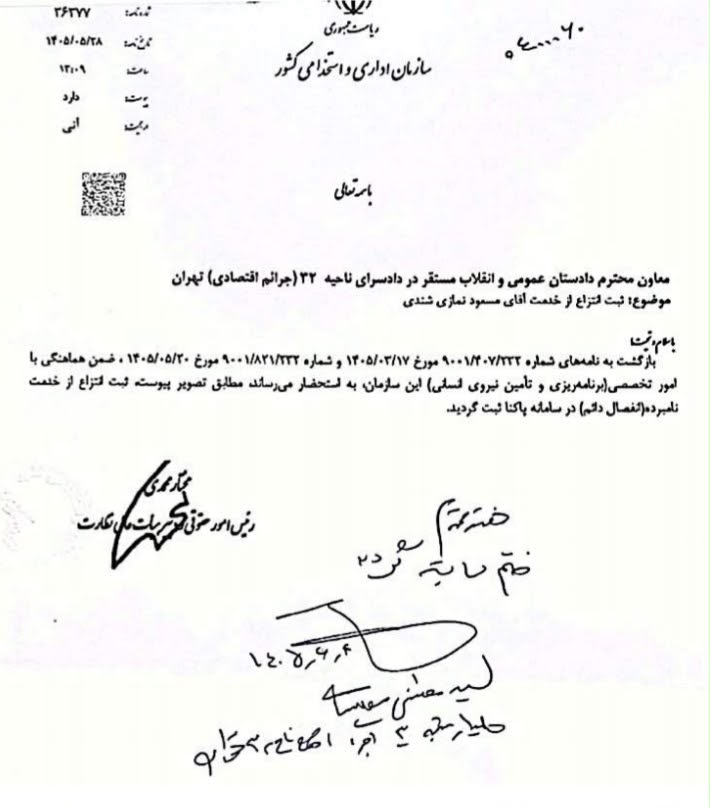 شماره نامه: ۳۶۳۷۷
تاریخ نامه: ۱۴۰۵/۰۵/۲۸
ساعت: ۱۳:۰۹
پیوست: دارد
آنی
ریاست جمهوری
سازمان اداری و استخدامی کشور
باسمه تعالی
معاون محترم دادستان عمومی و انقلاب مستقر در دادسرای ناحیه ۳۲ (جرائم اقتصادی) تهران
موضوع: ثبت انتزاع از خدمت آقای مسعود نمازی شندی
با سلام و تحیت؛
بازگشت به نامه‌های شماره ۹۰۰۱/۴۰۷/۲۳۲ مورخ ۱۴۰۵/۰۳/۱۷ و شماره ۹۰۰۱/۸۲۱/۲۳۲ مورخ ۱۴۰۵/۰۵/۲۰ ، ضمن هماهنگی با
امور تخصصی(برنامه‌ریزی و تأمین نیروی انسانی) این سازمان، به استحضار می‌رساند، مطابق تصویر پیوست، ثبت انتزاع از خدمت
نامبرده(انفصال دائم) در سامانه پاکنا ثبت گردید.
مختار محمدی
رئیس امور حقوقی و هیات‌های نظارت
ختم سابقه
سید مجتبی